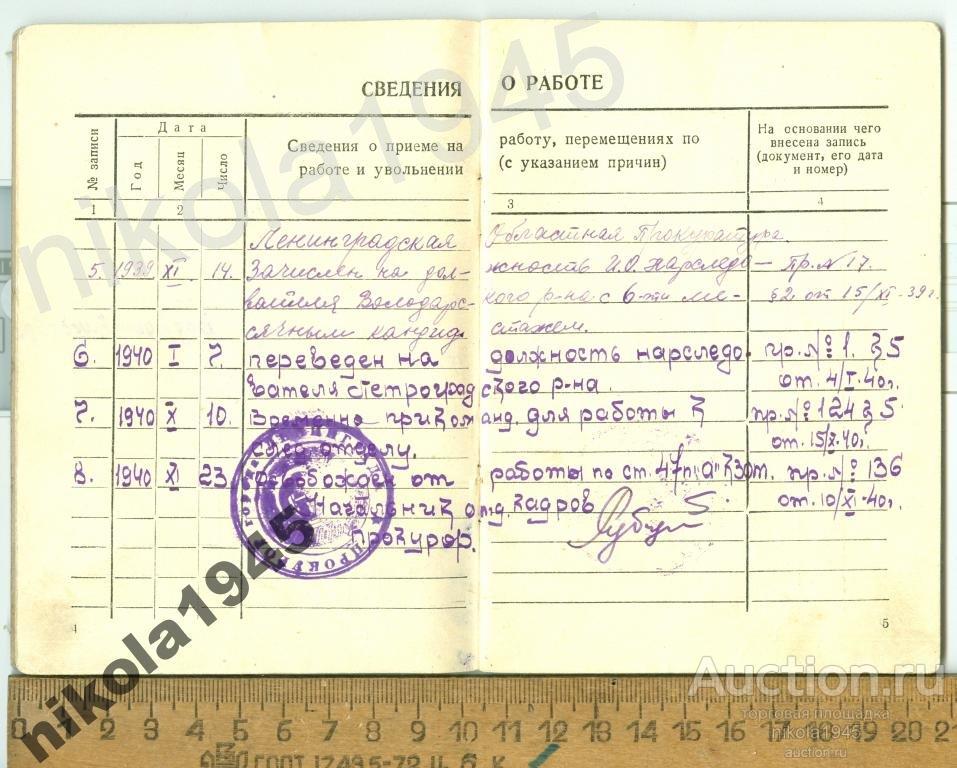 nikola1945
СВЕДЕНИЯ О РАБОТЕ
№ записи
Дата
Год
Месяц
Число
Сведения о приеме на работу, перемещениях по
работе и увольнении (с указанием причин)
На основании чего
внесена запись
(документ, его дата
и номер)
1 2 3 4
Ленинградская Областная Прокуратура.
5. 1939 XI 14. Зачислен на дол- жность И.О. Нарследо- Пр. № 17.
вателя Володарс- кого р-на с 6-ти ме- §2. от 15/XI-39 г.
сячным кандид. стажем.
6. 1940 I 7. переведен на должность нарследо- пр. № 1. § 5
вателя Петроград ского р-на. от. 4/I-40г.
7. 1940 X 10. Временно приком анд. для работы к пр. № 124 § 5.
отделу. от. 15/X-40г.
8. 1940 XI 23. Освобожден от работы по ст. 47 п "а" КЗОТ. пр. № 136
Начальник отд. кадров от. 10/XI-40г.
Прокурор.
4 5
nikola1945
0 1 2 3 4 5 6 7 8 9 10 11 12 13 14 15 16 17 18 19 20 21
ГОСТ 17495-72 Ц. 6 к
Auction.ru
торговая площадка
nikola1945
auction.ru